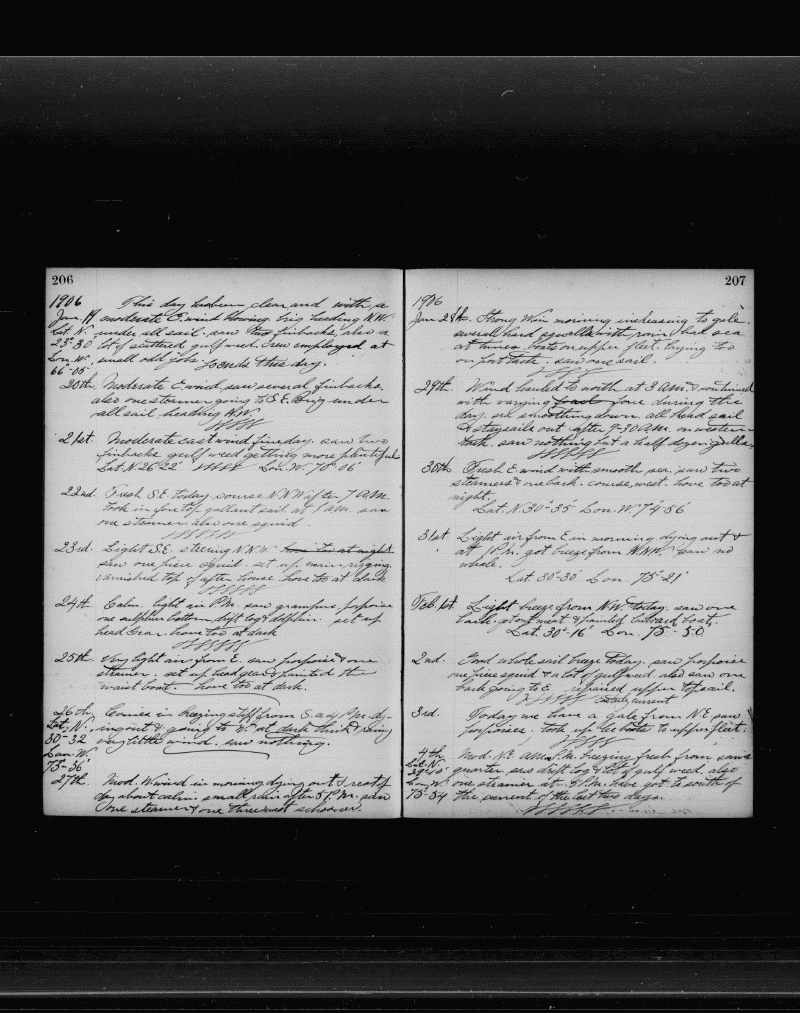 206
1906 This day has been clear and with a
Jan. 19 moderate E. wind blowing brig heading N.W.
Lat. N. under all sail. saw two finbacks, also a
23°-30 lot of scattered gulf weed. Crew employed at
Lon. W. small odd jobs. So ends this day.
66°-05'
20th. Moderate E. wind, saw several finbacks.
also one steamer going to S.E. Brig under
all sail heading N.W.
21st. Moderate east wind fine day. saw two
finbacks gulf weed getting more plentiful
Lat. N. 26°22' Lon. W. 70°06'
22nd. Fresh S.E. today, course N.N.W. after 7 A.M.
took in fore top gallant sail at 8 A.M. saw
one steamer also one squid.
23rd. Light S.E. steering N.N.W. hove too at night
saw one piece squid. set up main rigging
varnished top of after house. hove too at dark
24th. Calm, light air P.M. saw grampus, porpoise
one sulphur bottom, drift log & dolphin. set up
head gear hove too at dark
25th. Very light air from E. saw porpoise & one
steamer. set up head gear & painted the
waist boat. hove too at dark.
26th. Comes in breezing stiff from S. at 4 P.M. dy-
Lat. N. ing out & going to W. at dark thick & rainy
30°-32 very little wind. saw nothing.
Lon. W.
73°-36'
27th. Mod. W. wind in morning dying out & rest of
day about calm. small rain after 5 P.M. saw
one steamer & one three mast schooner.
207
1906
Jan. 28th. Strong W. in morning increasing to gale.
several hard squalls with rain, bad sea
at times boats on upper fleet. laying too
on port tack. saw one sail.
29th. Wind hauled to north at 3 A.M. & continued
with varying force during the
day. sea smoothing down. all head sail
& staysails out after 9-30 A.M. on western
tack. saw nothing but a half dozen gulls.
30th. Fresh E. wind with smooth sea, saw two
steamers & one bark. course, west. hove too at
night.
Lat. N 30°35' Lon. W 74°56
31st. Light air from E. in morning dying out &
at P.M. got breeze from N.N.W. saw no
whale.
Lat. 30°30' Lon. 75°21'
Feb. 1st. Light breeze from N.W. today. saw one
bark. got out meat & painted larboard boat.
Lat. 30°-16' Lon. 75°-50
2nd. Good whole sail breeze today. saw porpoise
one piece squid & a lot of gulf weed. also saw one
bark going to E. repaired upper topsail.
current
3rd. Today we have a gale from N.E. saw
porpoises. took up the boats to upper fleet.
4th. Mod. N.E. A.M. P.M. breezing fresh from same
Lat. N. quarter, saw drift log & lot of gulf weed, also
Lon. W. one steamer at 8 P.M. have got to south of
75°-54 the current of the last two days.